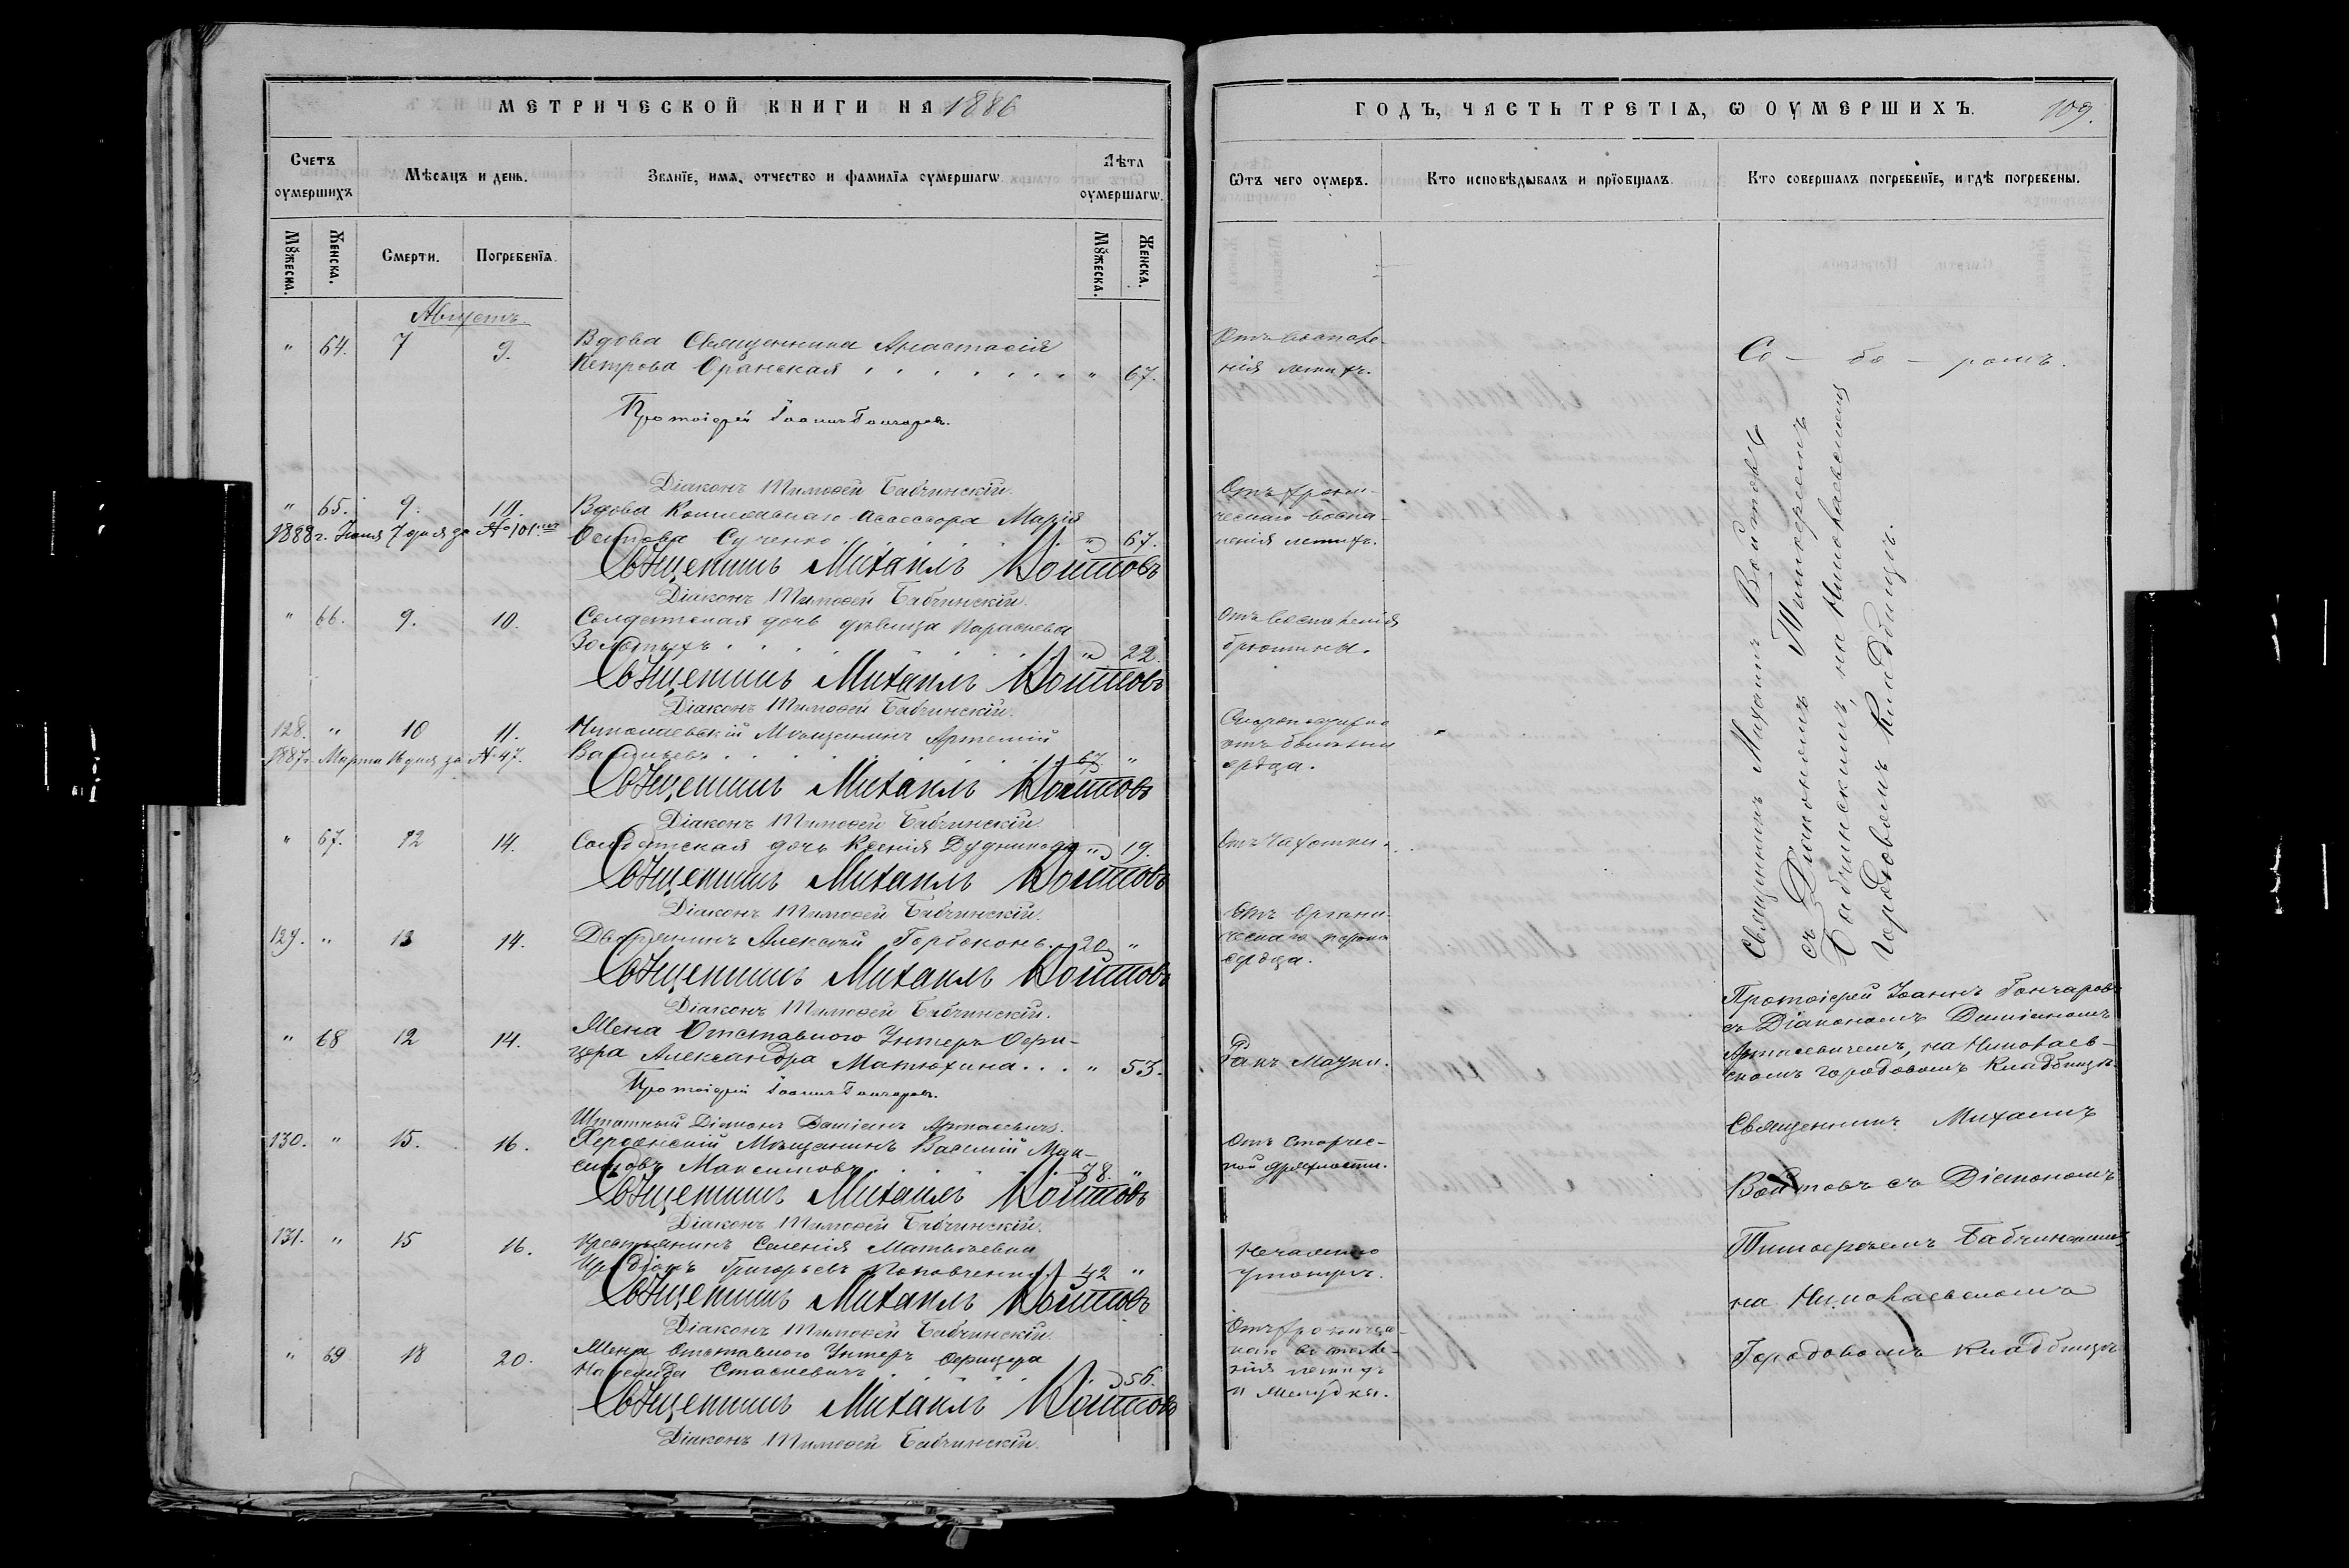 МЕТРИЧЕСКОЙ КНИГИ НА 1886
Счетъ оумершихъ
Мѣсяцъ и день.
Званїе, имя, отчество и фамилїя оумершагѡ
Лѣта оумершагѡ.
Мꙋжеска.
Женска.
Смерти.
Погребенїя.
Мꙋжеска.
Женска.
Августъ.
" 64. 7 9. Вдова Священника Анастасія
Петрова Оранская " 67.
Протоіерей Іоаннъ Гончаровъ.
Діаконъ Тимоѳей Бабчинскій.
" 65. 9. 10. Вдова Коллежскаго Ассесора Марія
1888 г. Іюня 7 дня за № 101 Осипова Сученко " 67.
Священникъ Михаилъ Войтовъ
Діаконъ Тимоѳей Бабчинскій.
" 66. 9. 10. Солдатская дочь дѣвица Параскева
Золотыхъ " 22.
Священникъ Михаилъ Войтовъ
Діаконъ Тимоѳей Бабчинскій.
128. " 10 11. Николаевскій Мѣщанинъ Артемій
1887 г. Марта 16 дня за № 47. Васильевъ 67 "
Священникъ Михаилъ Войтовъ
Діаконъ Тимоѳей Бабчинскій.
" 67. 12 14. Солдатская дочь Ксенія Дудникова " 19.
Священникъ Михаилъ Войтовъ
Діаконъ Тимоѳей Бабчинскій.
129. " 13 14. Дворянинъ Алексѣй Горбоконь. 20 "
Священникъ Михаилъ Войтовъ
Діаконъ Тимоѳей Бабчинскій.
" 68 12 14. Жена Отставного Унтеръ Офи-
цера Александра Матюхина " 53.
Протоіерей Іоаннъ Гончаровъ.
Штатный Діаконъ Даміанъ
130. " 15. 16. Херсонскій Мѣщанинъ Василій Мак-
симовъ Максимовъ 78. "
Священникъ Михаилъ Войтовъ
Діаконъ Тимоѳей Бабчинскій.
131. " 15 16. Крестьянинъ Селенія Матвѣевки
Иродіонъ Григорьевъ Поповченко 42 "
Священникъ Михаилъ Войтовъ
Діаконъ Тимоѳей Бабчинскій.
" 69 18 20. Жена Отставного Унтеръ Офицера
Надежда Стаскевичъ 56.
Священникъ Михаилъ Войтовъ
Діаконъ Тимоѳей Бабчинскій.
ГОДЪ, ЧАСТЬ ТРЕТІЯ, Ѡ ОУМЕРШИХЪ.
109.
Ѿтъ чего оумеръ.
Кто исповѣдывалъ и прїобщалъ.
Кто совершалъ погребенїе, и гдѣ погребены.
Отъ воспале-
нія легкихъ.
Со - бо - ромъ.
Отъ хрони-
ческаго воспа-
ленія легкихъ.
Отъ воспаленія
брюшины.
Скоропостижно
отъ болѣзни
сердца.
Отъ Чахотки.
Отъ Органи-
ческаго порока
сердца.
Священникъ Михаилъ Войтовъ
съ Діакономъ Тимоѳеемъ
Бабчинскимъ, на Николаевскомъ
Городовомъ Кладбищѣ.
Ракъ Матки.
Протоіерей Іоаннъ Гончаровъ
съ Діакономъ Даміаномъ
на Николаев-
скомъ городовомъ Кладбищѣ.
Отъ старчес-
кой дряхлости.
Священникъ Михаилъ
Войтовъ съ Діакономъ
Нечаянно
утонулъ.
Тимоѳеемъ Бабчинскимъ
на Николаевскомъ
Отъ хроничес-
каго воспале-
нія легкихъ
и желудка.
Городовомъ Кладбищѣ